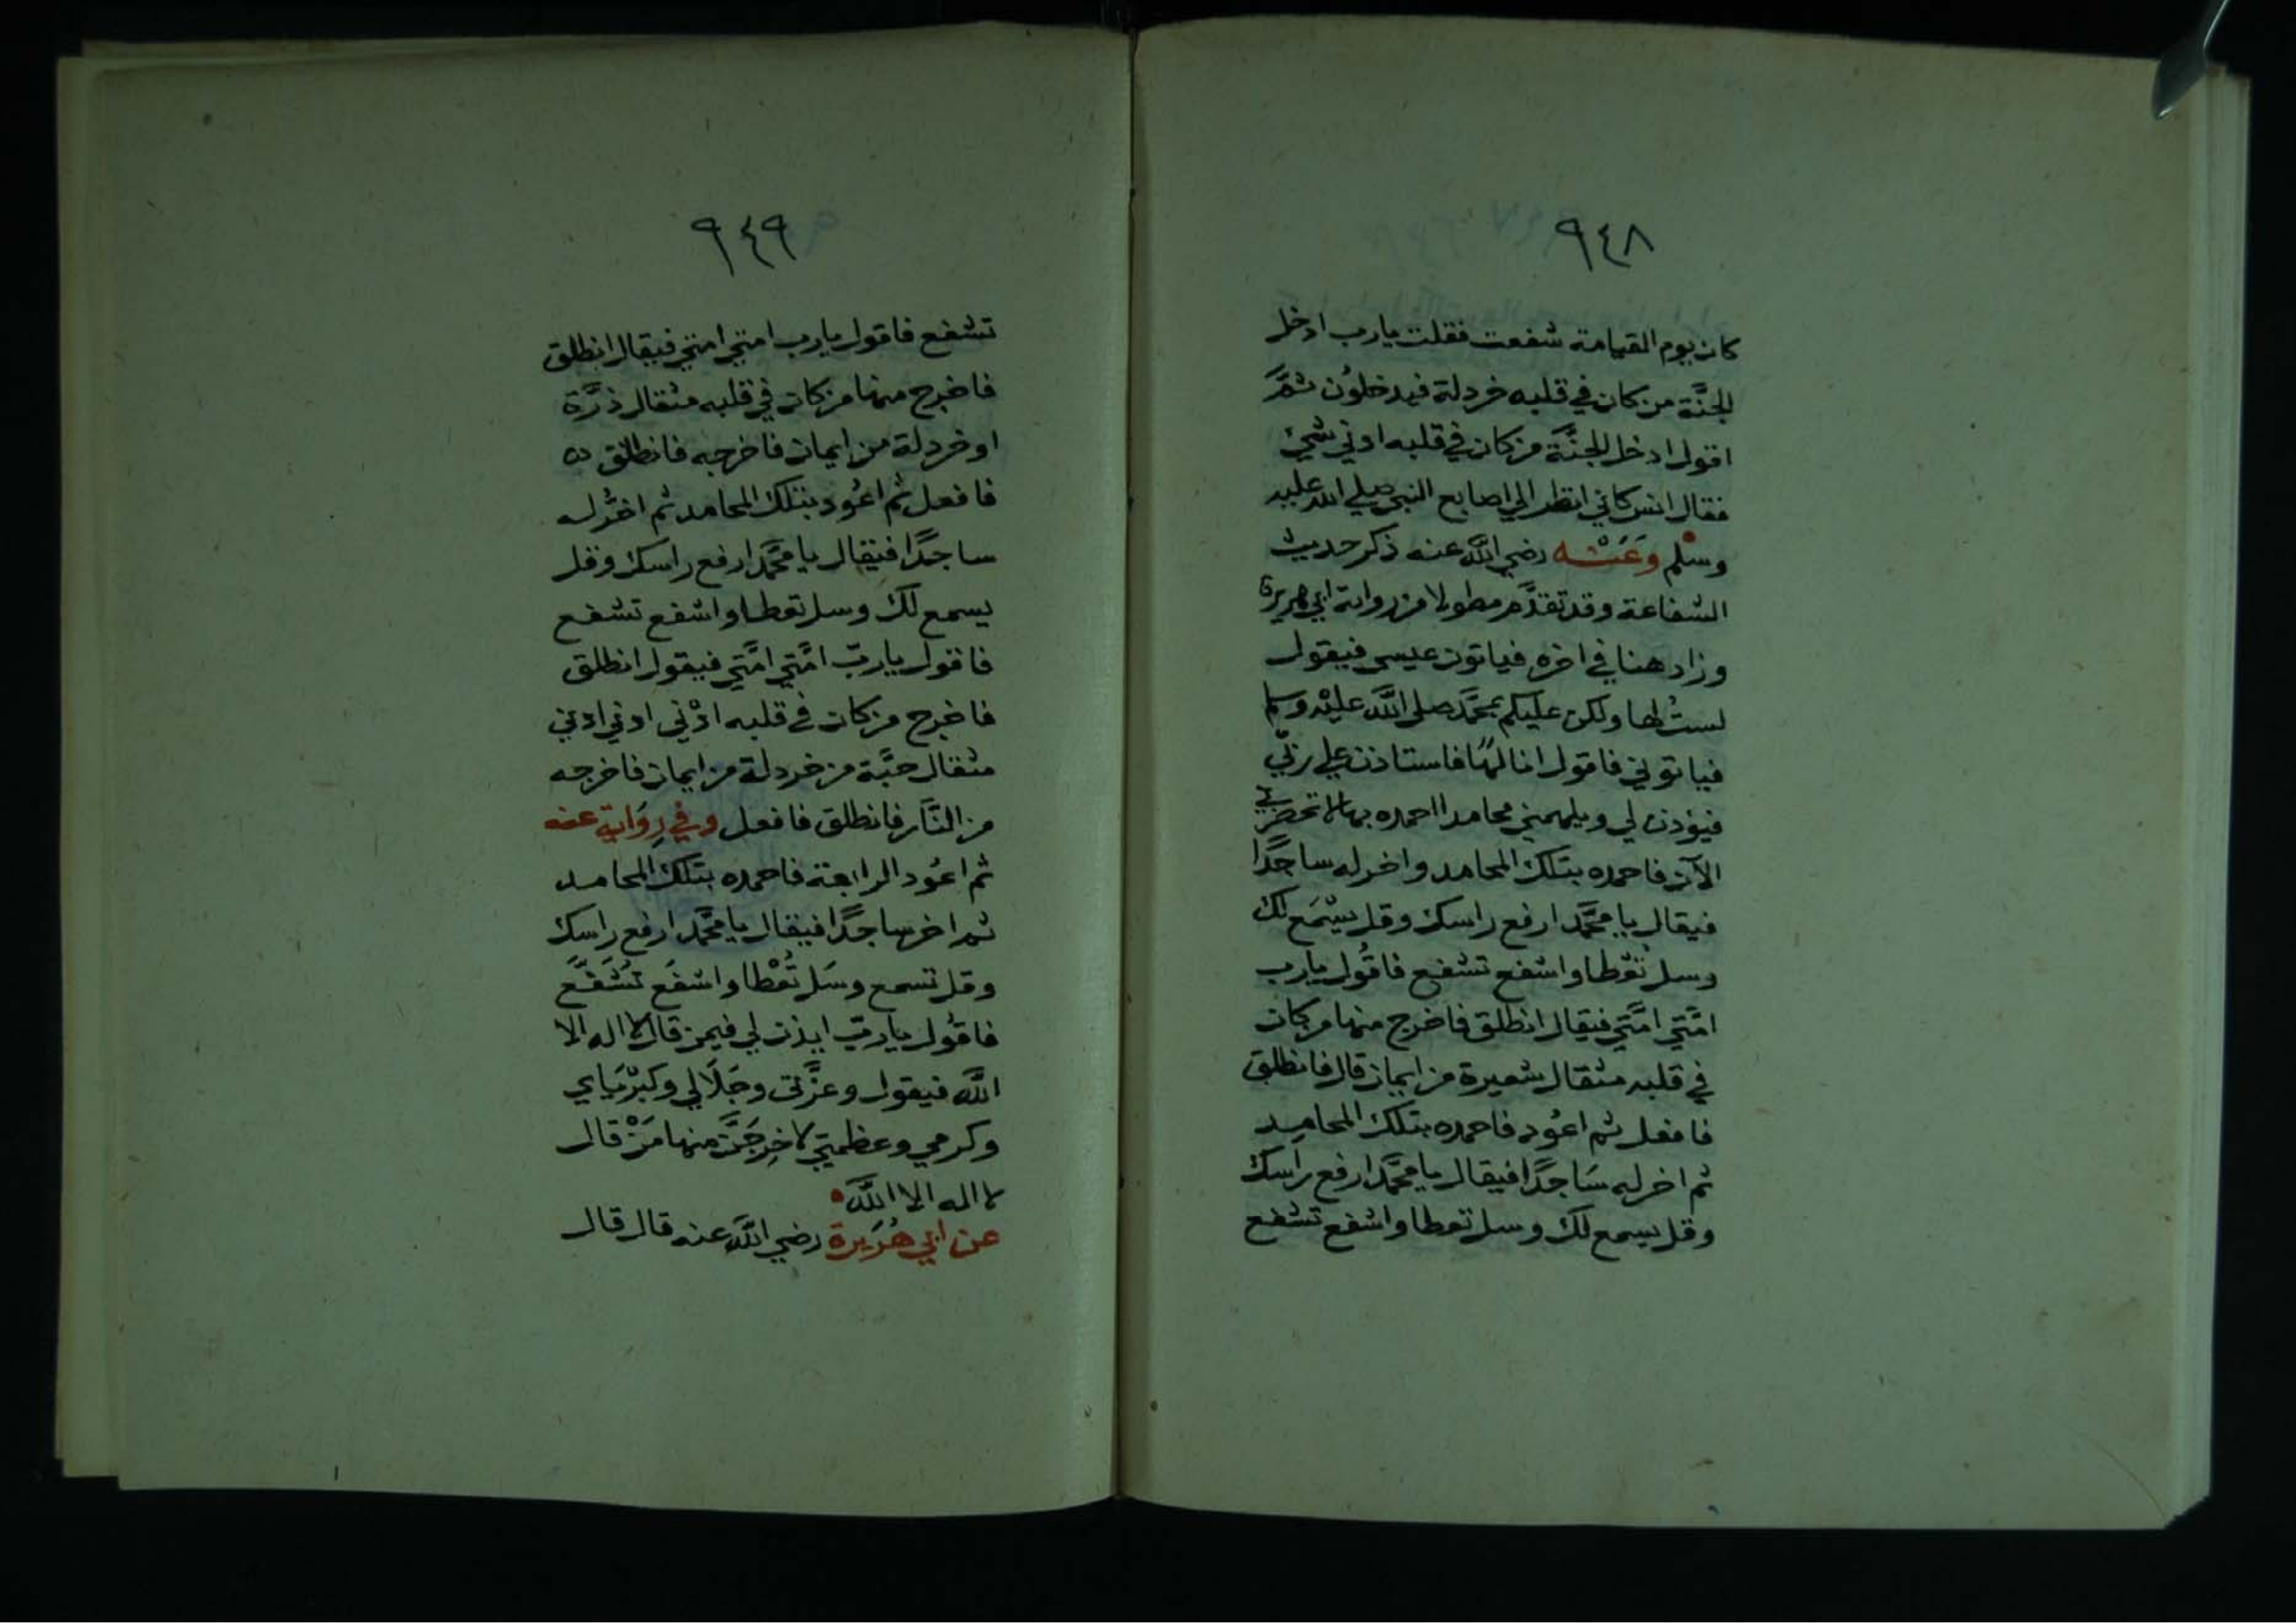 ٩٤٨
كان يوم القيامة شفعت فقلت يارب ادخل
الجنَّة من كان في قلبه خردلة فيدخلون ثمَّ
اقول ادخل الجنَّة من كان في قلبه ادني شيئ
فقال انس كاني انظر الي اصابع النبي صلي الله عليه
وسلم وَعَنْه رضي اللَّه عنه ذكر حديث
الشفاعة وقد تقدَّم مطولا من رواية ابي هريرة
وزاد هنا في اخره فياتون عيسى فيقول
لستُ لها ولكن عليكم بمحمَّد صلى اللَّه عليْه وسلم
فياتوني فاقول انا لها فاستاذن علي ربّي
فيؤذن لي ويلهمني محامدا احمده بها لا تحضرني
الآن فاحمده بتلك المحامد واخر له ساجدًا
فيقال يا محمَّد ارفع راسك وقل يسْمَع لك
وسل تُعْطا واشفع تشفع فاقُول يارب
امَّتي امَّتي فيقال انطلق فاخرج منها من كان
في قلبه مثقال شعيرة من ايمان قال فانطلق
فافعل ثم اعُود فاحمده بتلك المحامِد
ثم اخر له سَاجدًا فيقال يا محمَّد ارفع راسك
وقل يسمع لك وسل تعطا واشفع تشفع
٩٤٩
تشفع فاقول يارب امتي امتي فيقال انطلق
فاخرج منها من كان في قلبه مثقال ذرَّة
او خردلة من ايمان فاخرجه فانطلق
فافعل ثم اعُود بتلك المحامد ثم اخُّر له
ساجدًا فيقال يا محمَّد ارفع راسك وقل
يسمع لك وسل تعطا واشفع تشفع
فاقول ياربّ امَّتي امَّتي فيقول انطلق
فاخرج من كان في قلبه ادْني ادني ادني
مثقال حبَّة من خردلة من ايمان فاخرجه
من النَّار فانطلق فافعل وفي رِوَاية عنه
ثم اعُود الرابعة فاحمده بتلك المحامد
ثم اخر ساجدًا فيقال يا محمَّد ارفع رَاسك
وقل تسمع وسَل تُعْطا واشفَع تشَفَّع
فاقُول ياربّ ايذن لي فيمن قال لا اله الا
اللَّه فيقول وعزَّتي وجَلَالي وكبرْيَاي
وكرمي وعظمتي لاخرِجَنَّ منها مَنْ قال
لا اله الا اللَّه
عن ابي هُرَيرة رضي اللَّه عنه قال قال